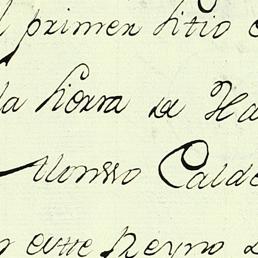 l primer sitio
la honra de Ha
Alonsso Calde
en este Reyno de